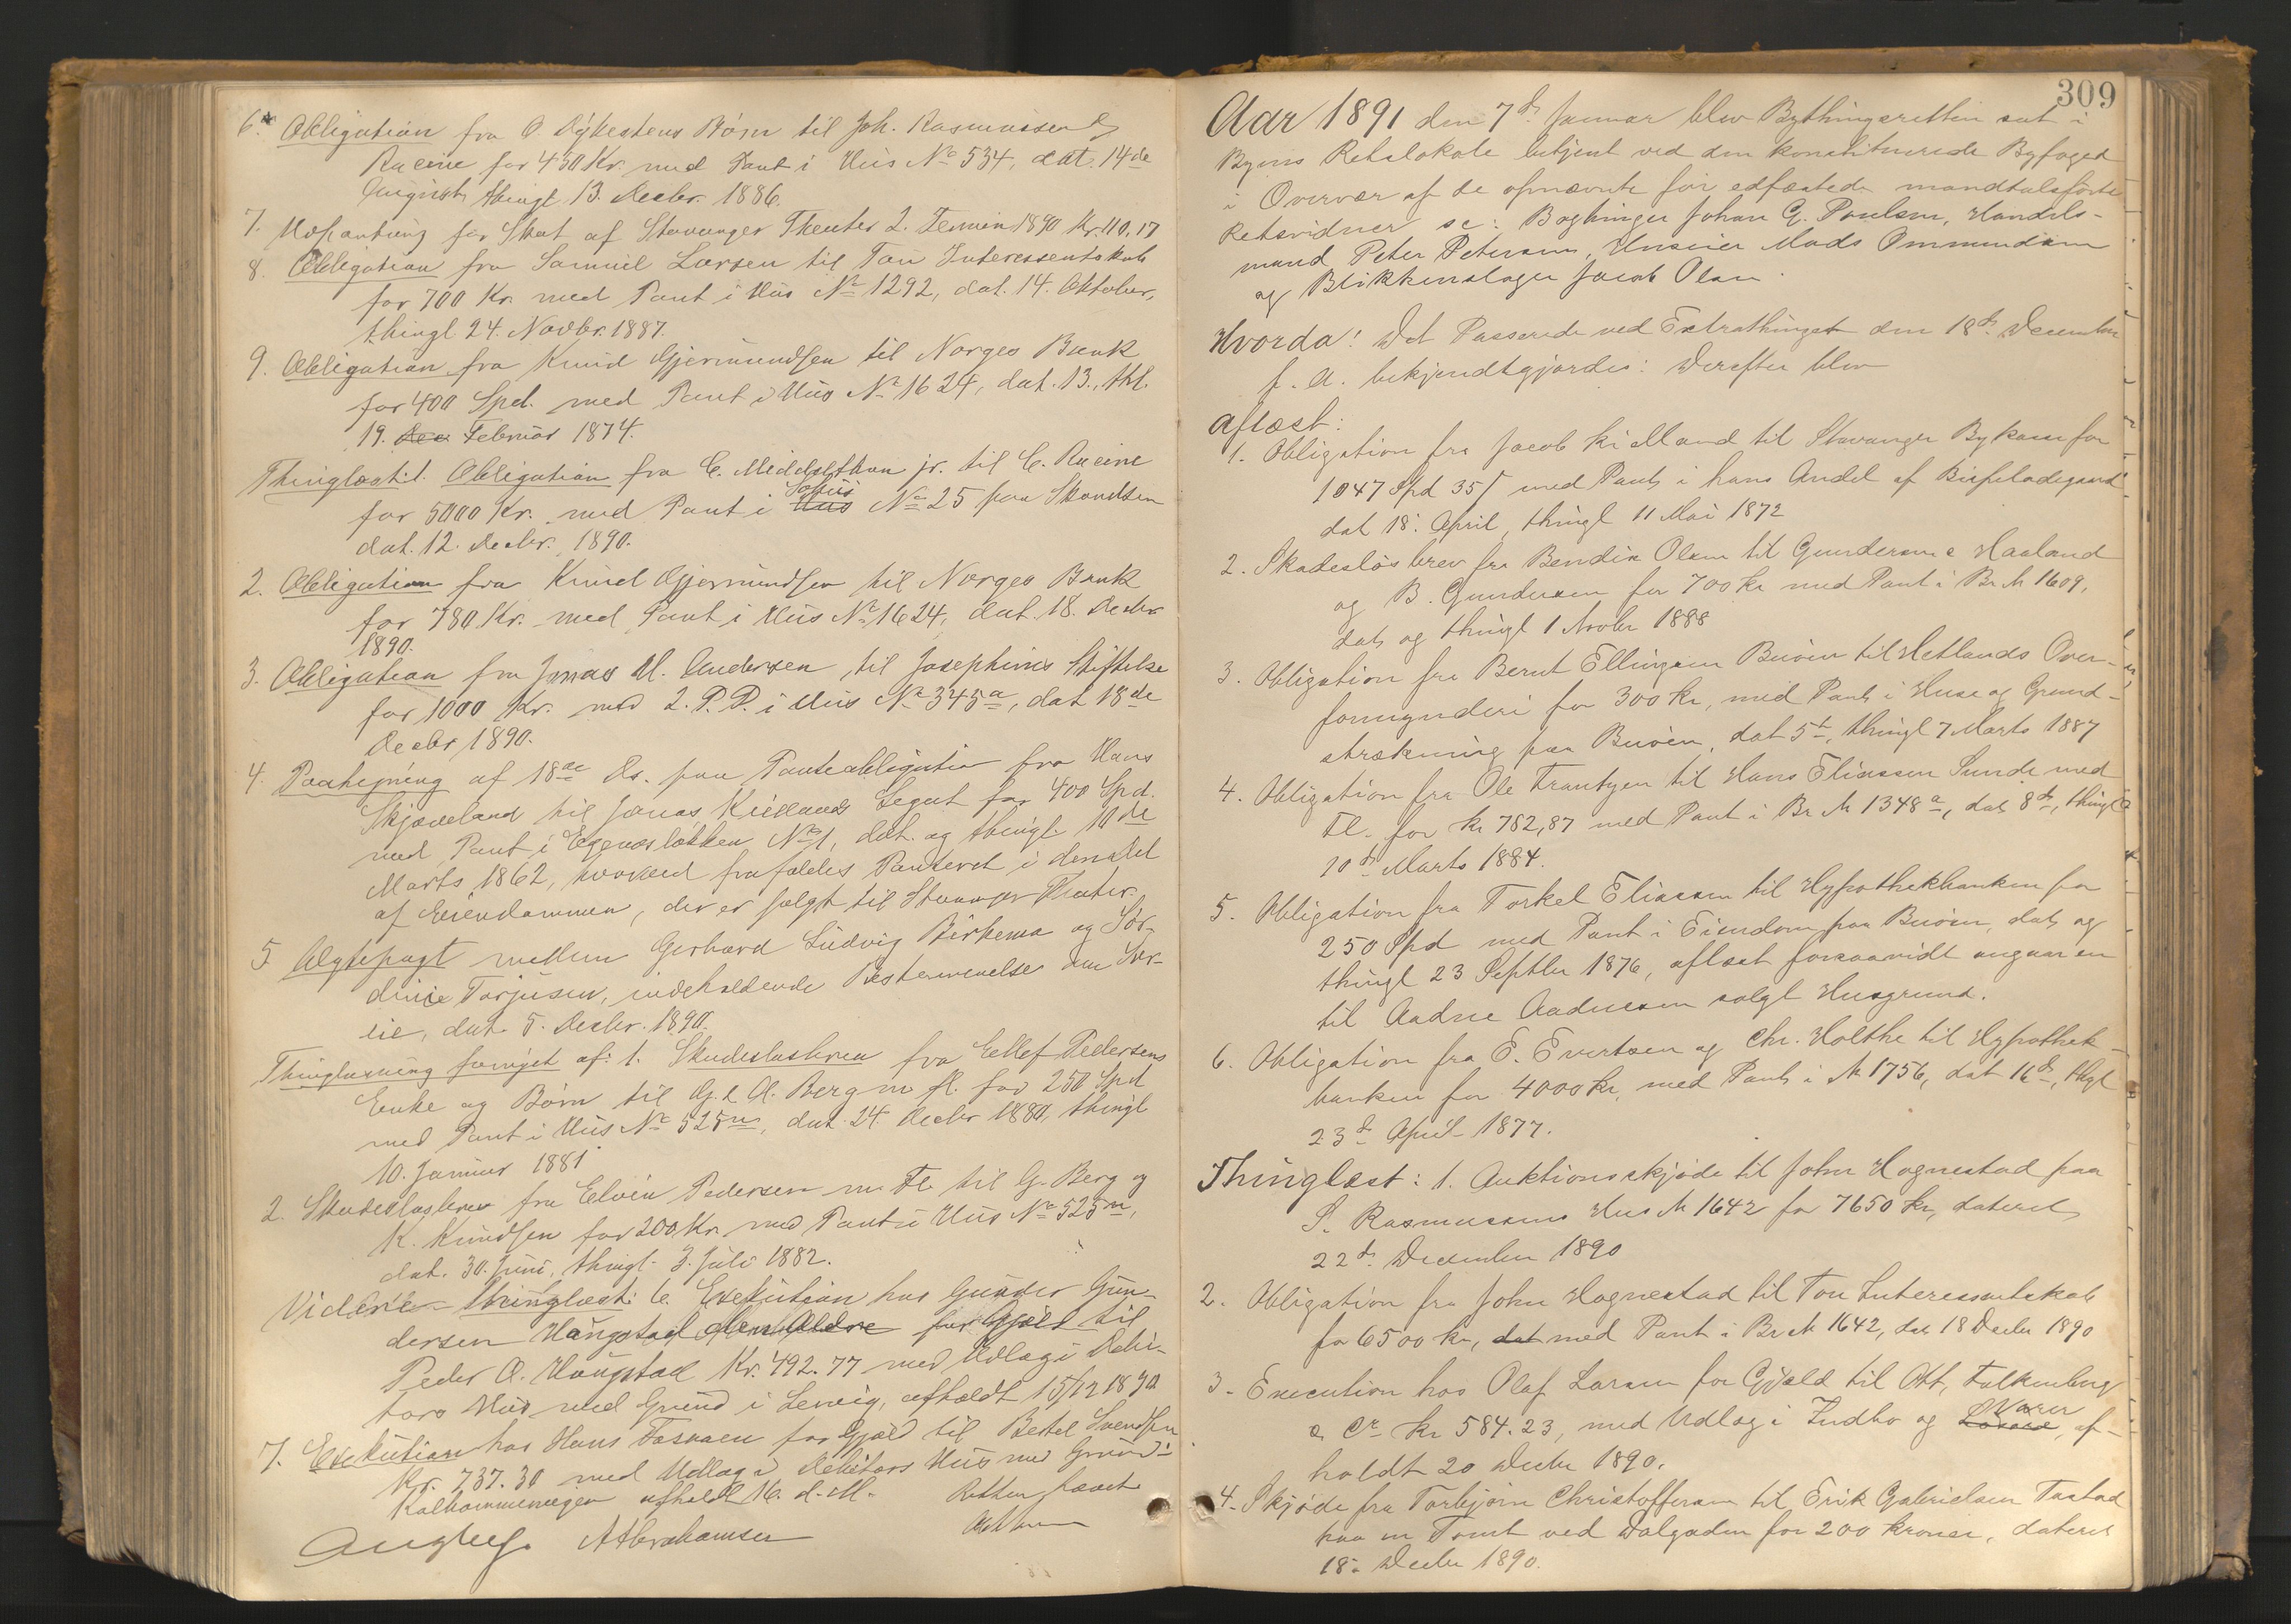 6. Obligation fra O. Dybestens Børn til Joh. Rasmussen &
Racine for 450 Kr. med Pant i Hus No 534, dat. 14de
August, thingl. 13. Decbr. 1886.
7. Udpantning for Skat af Stavanger Theater 2. Termin 1890 Kr. 110,17
8. Obligation fra Samuel Larsen til Tou Interessentskab
for 700 Kr. med Pant i Hus No 1292, dat. 14. Oktober,
thingl. 24. Novbr. 1887.
9. Obligation fra Knud Gjermundsen til Norges Bank
for 400 Spd. med Pant i Hus No 1624, dat. 13., thl.
19. Dec Februar 1874.
Thinglæst: 1. Obligation fra C. Middelthon jr. til C. Racine
for 5000 Kr. med Pant i Hus Søhus No 25 paa Skandsen
dat. 12. Decbr. 1890.
2. Obligation fra Knud Gjermundsen til Norges Bank
for 780 Kr. med Pant i Hus No 1624, dat. 18. Decbr
1890.
3. Obligation fra Jonas M. Andersen til Josephines Stiftelse
for 1000 Kr. med 2. P. P. i Hus No 345a, dat 18de
Decbr 1890.
4. Paategning af 18de ds. paa Panteobligation fra Hans
Skjæveland til Jonas Kiellands Legat for 400 Spd.
med Pant i Egenesløkken No 1, dat. og thingl. 10de
Marts 1862, hvorved frafaldes Panteret i den Del
af Eiendommen, der er solgt til Stavanger Theater.
5. Ægtepagt mellem Gerhard Ludvig Birkema og Sør-
dinie Torjusen, indeholdende Bestemmelse om Sær-
eie, dat. 5. Decbr. 1890.
Thinglæsning fornyet af: 1. Skadesløsbrev fra Ellef Pedersens
Enke og Børn til G. & A. Berg m. fl. for 250 Spd
med Pant i Hus No 525m, dat. 24. Decbr 1880, thingl
10. Januar 1881
2. Skadesløsbrev fra Elvin Pedersen m. Fl. til G. Berg og
K. Knudsen for 200 Kr. med Pant i Hus No 525m,
dat. 30. Juni, thingl. 3. Juli 1882.
Videre Thinglæst: 6. Exekution hos Gunder Gun-
dersen Haugstad den Ældre for Gjæld til
Peder O. Haugstad Kr. 492.77 med Udlæg i Debi-
tors Hus med Grund i Lervig, afholdt 15/12 1890
7. Exekution hos Hans Fosvaen for Gjæld til Bertel Svendsen
Kr. 737.30 med Udlæg i Debitors Hus med Grund i
Kalhammervigen afholdt 16. d. M. Retten hævet
A Abrahamsen
309
Aar 1891 den 7de Januar blev Bythingsretten sat i
Byens Retslokale betjent ved den konstituerede Byfoged
i Overvær af de opnævnte før edfæstede mandtalsførte
Retsvidner se: Bogbinder Johan G. Poulsen, Handels-
mand Peter Petersen, Huseier Mads Ommundsen
og Blikkenslager Jacob Olsen.
Hvorda: Det Passerede ved Extrathinget den 18de December
f. A. bekjendtgjordes: Derefter blev
aflæst:
1. Obligation fra Jacob Kielland til Stavanger Bykasse for
1047 Spd 35 ß med Pant i hans Andel af Bispeladegaard
dat 18. April, thingl 11 Mai 1872
2. Skadesløsbrev fra Bendix Olsen til Gundersen & Haaland
og B. Gundersen for 700 Kr med Pant i Br. № 1609,
dat og thingl 1 Novbr 1888
3. Obligation fra Bernt Ellingsen Buøen til Hetlands Over-
formynderi for 300 Kr, med Pant i Huse og Grund-
strækning paa Buøen, dat 5t, thingl 7 Marts 1887
4. Obligation fra Ole Frantzen til Hans Eliassen Sunde med
Fl. for Kr 782,87 med Pant i Br № 1348a, dat 8de, thingl
10de Marts 1884.
5. Obligation fra Torkel Eliassen til Hypothekbanken for
250 Spd med Pant i Eiendom paa Buøen, dat og
thingl 23 Septbr 1876, aflæst forsaavidt angaar en
til Aadne Aadnesen solgt Husgrund.
6. Obligation fra E. Evertsen og Chr. Holthe til Hypothek-
banken for 4000 Kr, med Pant i № 1756, dat 16de, thgl
23de April 1877.
Thinglæst: 1. Auktionsskjøde til John Hognestad paa
S. Rasmussens Hus № 1642 for 7650 Kr, dateret
22de December 1890
2. Obligation fra John Hognestad til Tou Interessentskab
for 6500 Kr, dat med Pant i Br № 1642, dat 18 Decbr 1890
3. Execution hos Olaf Larsen for Gjæld til Ott. Falkenberg
& Co Kr 584.23, med Udlæg i Indbo og Løsøre Varer, af-
holdt 20 Decbr 1890.
4. Skjøde fra Torbjørn Christoffersen til Erik Gabrielsen Tastad
paa en Tomt ved Dalgaden for 200 Kroner, dateret
18. Decbr 1890.